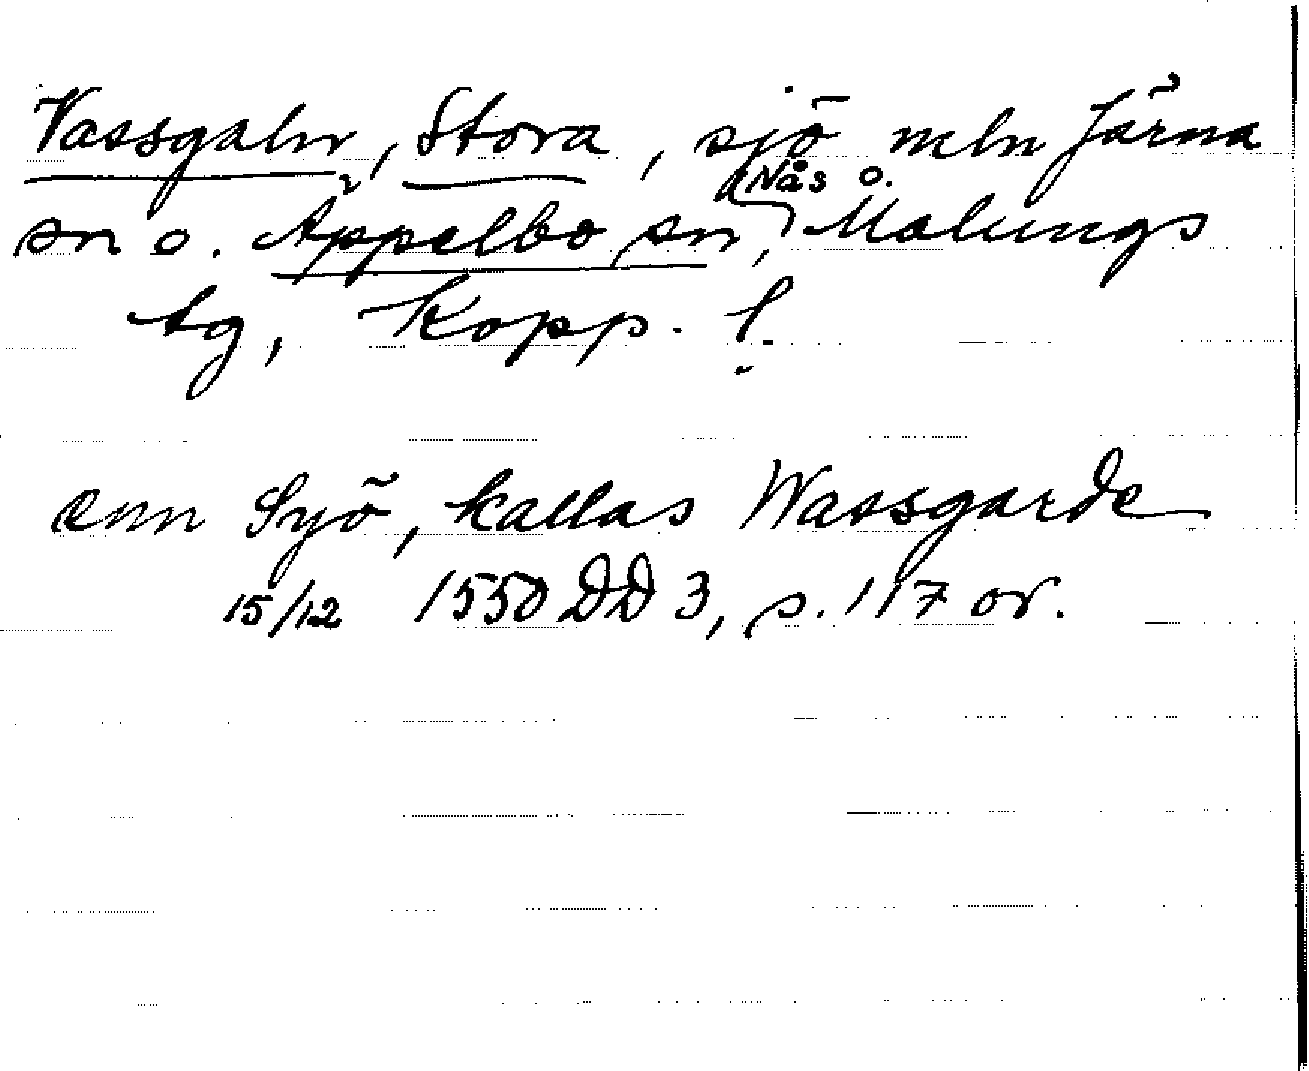 Vassgaln, Stora, sjö mln Järna
sn o. Äppelbo sn, Nås o. Malungs
tg, Kopp. l.
enn Syö, kallas Wassgarde
15/12 1550 DD 3, s. 117 or.